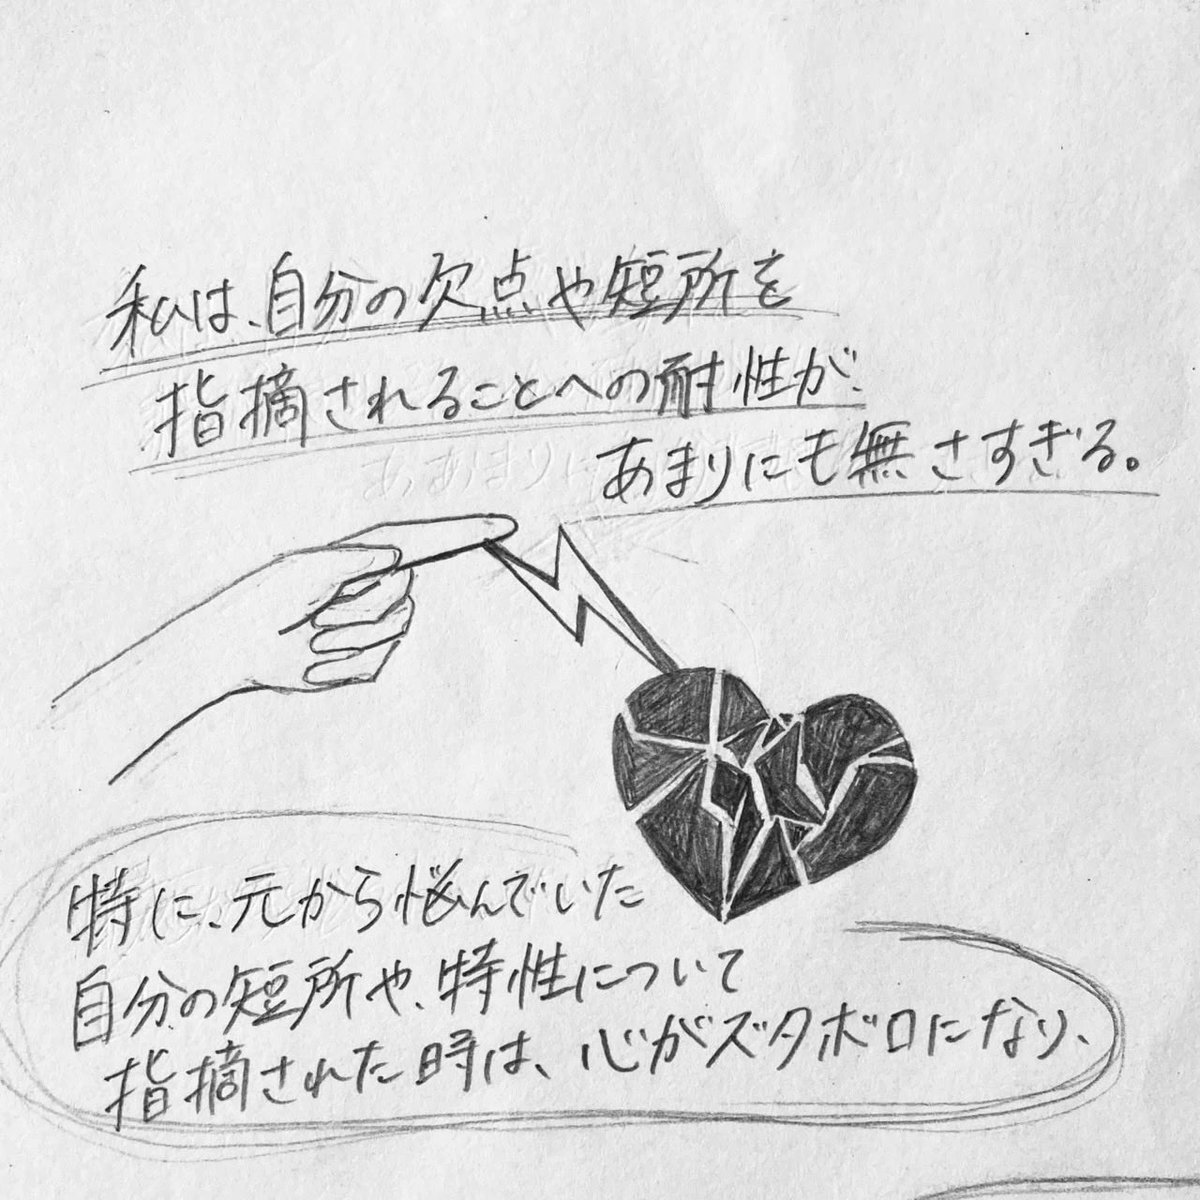 私は、自分の欠点や短所を
指摘されることへの耐性が、
あまりにも無さすぎる。
特に、元から悩んでいた
自分の短所や、特性について
指摘された時は、心がズタボロになり、